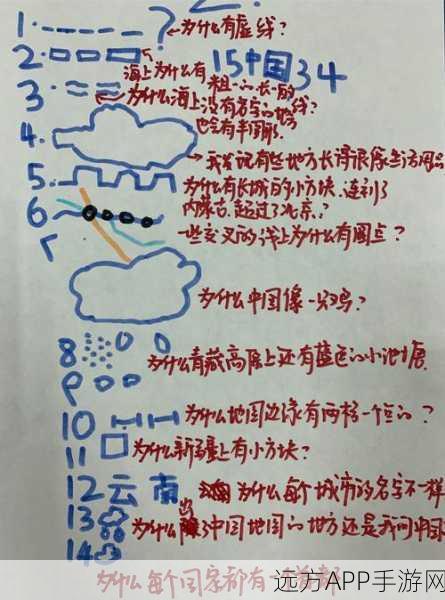 1. 为什么有虚线?
2.
海上为什么有粗一的长一的线?
15 中国 34
3. 为什么海上没有名字的地方
也会有半圆形
4.
我发现有些地方长得很像生活用品
5. 为什么有长城的小方块,连到了
内蒙古,超过了北京?
6 一些交叉的线上为什么有圆点?
为什么中国像一只鸡?
8 为什么青藏高原上还有蓝色的小池塘
9
10 为什么地图边缘有两杨一个的?
11 为什么新疆上有小方块?
12 云南 为什么每个城市的名字不一样
13 为什么除了中国地图的地方还是我们中国
14
为什么每个国家都有一个首都
远方APP手游网